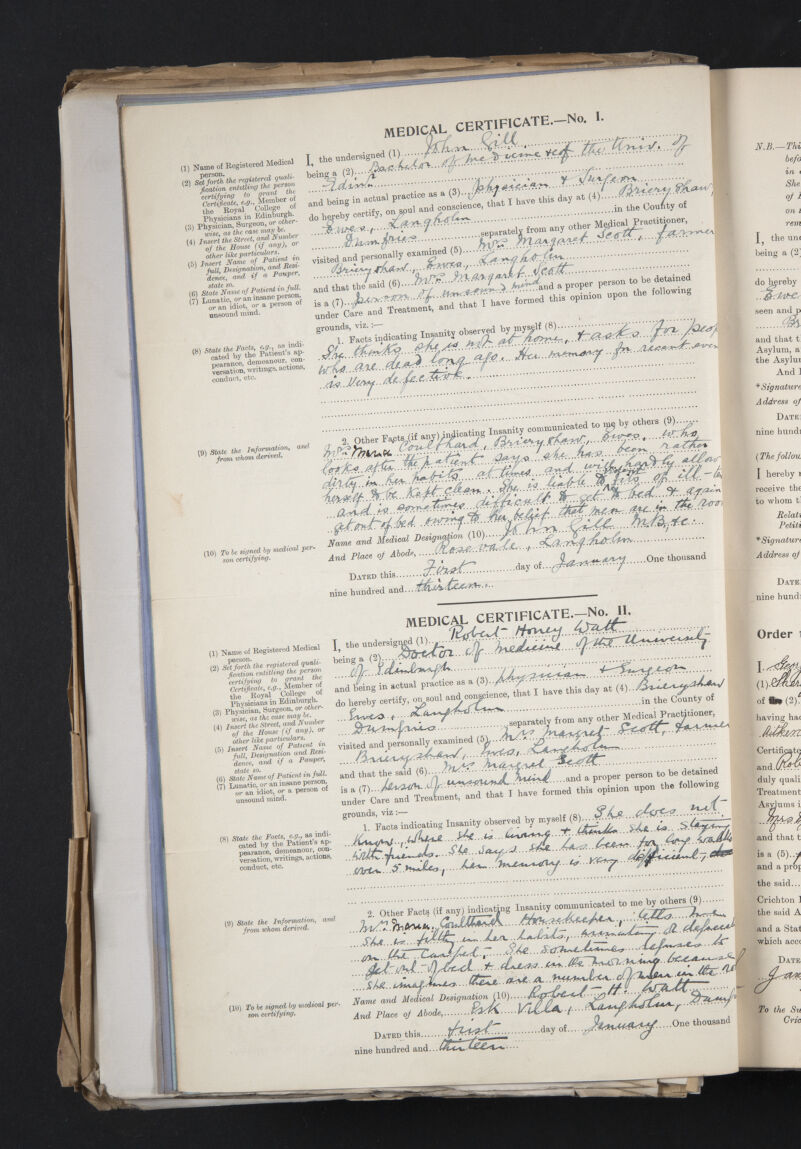 MEDICAL CERTIFICATE.—No. I.
(1) Name of Registered Medical person.
(2) Set forth the registered quali-
fication entitling the person
certifying to grant the
Certificate, e.g., Member of
the Royal College of
Physicians in Edinburgh.
(3) Physician, Surgeon, or other-
wise, as the case may be.
(4) Insert the Street, and Number
of the House (if any), or
other like particulars.
(5) Insert Name of Patient in
full, Designation, and Resi-
dence, and if a Pauper,
state so.
(6) State Name of Patient in full.
(7) Lunatic, or an insane person,
or an idiot, or a person of
unsound mind.
(8) State the Facts, e.g., as indi-
cated by the Patient's ap-
pearance, demeanour, con-
versation, writings, actions,
conduct, etc.
(9) State the Information, and
from whom derived.
(10) To be signed by medical per-
son certifying.
I, the undersigned (1) John Gill
being a (2) Bachelor of medicine &c of the Univ. of
Edinr.
and being in actual practice as a (3) Physician & Surgeon
do hereby certify, on soul and conscience, that I have this day at (4) Briery Shaw,
Ewes, Langholm in the County of
Dumfries separately from any other Medical Practitioner,
visited and personally examined (5) Mrs. Margaret Scott, farmer
Brieryshaw, Ewes, Langholm
and that the said (6) Mrs. Margaret Scott
is a (7) person of unsound mind and a proper person to be detained
under Care and Treatment, and that I have formed this opinion upon the following
grounds, viz. :—
1. Facts indicating Insanity observed by myself (8)
She thinks she is not at home, & asks for peop
who are dead long ago. Her memory for recent even
is very defective.
2. Other Facts (if any) indicating Insanity communicated to me by others (9)
Mrs. Maria Coulthard, Brieryshaw, Ewes, who
looks after the patient says she has been rather
dirty in her habits at times and will hardly allow
herself to be kept clean. She is liable to fits of ill-te
and is sometimes difficult to get to bed & again
get out of bed owing to her belief that men are in the room
Name and Medical Designation (10) John Gill M.B. &c.
And Place of Abode, Rosevale, Langholm
DATED this First day of January One thousand
nine hundred and thirteen.
MEDICAL CERTIFICATE.—No. II.
(1) Name of Registered Medical
person.
(2) Set forth the registered quali-
fication entitling the person
certifying to grant the
Certificate, e.g., Member of
the Royal College of
Physicians in Edinburgh.
(3) Physician, Surgeon, or other-
wise, as the case may be.
(4) Insert the Street, and Number
of the House (if any), or
other like particulars.
(5) Insert Name of Patient in
full, Designation and Resi-
dence, and if a Pauper,
state so.
(6) State Name of Patient in full.
(7) Lunatic, or an insane person,
or an idiot, or a person of
unsound mind.
(8) State the Facts, e.g., as indi-
cated by the Patient's ap-
pearance, demeanour, con-
versation, writings, actions,
conduct, etc.
(9) State the Information, and
from whom derived.
(10) To be signed by medical per-
son certifying.
I, the undersigned (1) Robert Honey Watt
being a (2) Doctor of medicine of the University
of Edinburgh
and being in actual practice as a (3) Physician & Surgeon
do hereby certify, on soul and conscience, that I have this day at (4) Brieryshaw
Ewes, Langholm in the County of
Dumfries separately from any other Medical Practitioner,
visited and personally examined (5) Mrs Margret Scott, farmer
Brieryshaw, Ewes, Langholm
and that the said (6) Mrs Margret Scott
is a (7) person of unsound mind and a proper person to be detained
under Care and Treatment, and that I have formed this opinion upon the following
grounds, viz :—
1. Facts indicating Insanity observed by myself (8) She does not
know, where she is living & thinks she is staying
with friends. She says she has been for long walks
over 5 miles, her memory is very deficient,
2. Other Facts (if any) indicating Insanity communicated to me by others (9)
Mrs. Maria Coulthard Housekeeper, tells me
She is filthy in her habits, urinating & defaecat
on the carpet. She sometimes refuses to
get out of bed & dress in the morning because
she imagines there are a number of men in the
Name and Medical Designation (10) Robert H. Watt
And Place of Abode, Esk Villa, Langholm, Dumf
DATED this first day of January One thousand
nine hundred and thirteen
N.B.—Thi
befo
in
She
of
on
rem
I, the und
being a (2)
do hereby
Ewe
seen and p
Br
and that t
Asylum, a
the Asylum
And I
*Signature
Address of
DATE
nine hund
(The follow
I hereby
receive the
to whom t
Relati
Petit
*Signature
Address of
DATE
nine hund
Order
I, Geor
(1) Sher
of (2)
having had
Aitken
Certificate
and Rob
duly quali
Treatment
Asylums i
Mrs
and that t
is a (5)
and a prop
the said
Crichton
the said A
and a Stat
which acco
DATE
Jan
To the Su
Cric